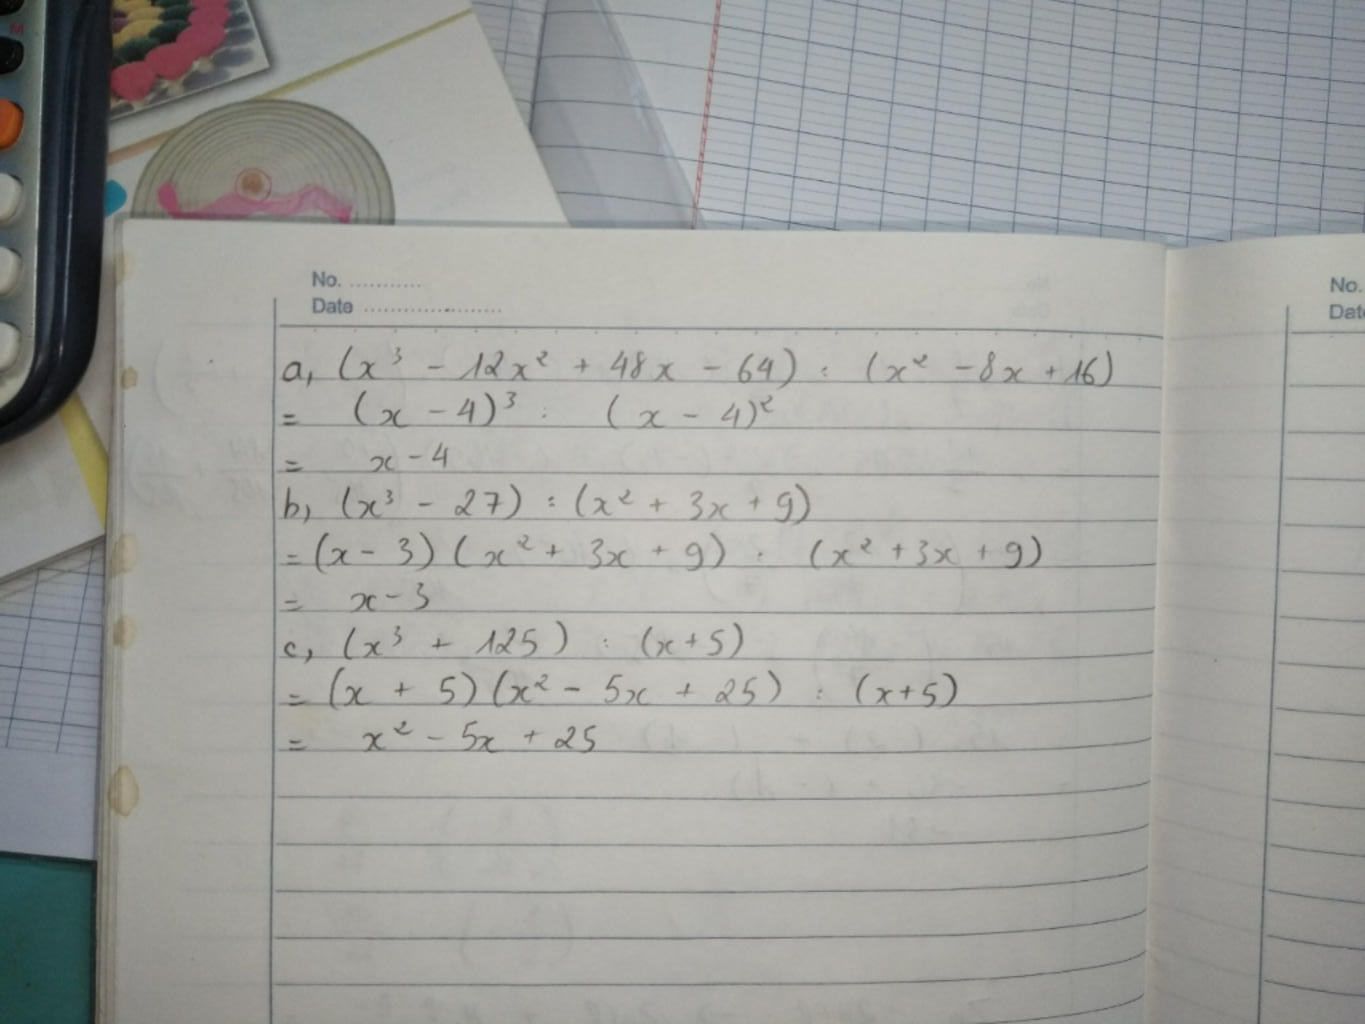 No. ...........
Date .....................
a, (x³ - 12x² + 48x - 64) : (x² - 8x + 16)
= (x - 4)³ : (x - 4)²
= x - 4
b, (x³ - 27) : (x² + 3x + 9)
= (x - 3) (x² + 3x + 9) : (x² + 3x + 9)
= x - 3
c, (x³ + 125) : (x + 5)
= (x + 5) (x² - 5x + 25) : (x + 5)
= x² - 5x + 25
No.
Date